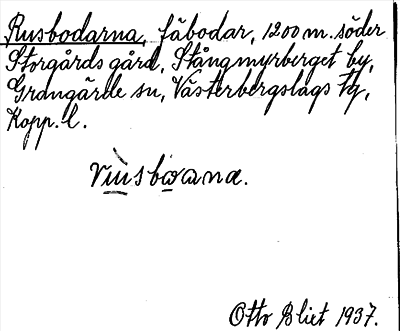 Rusbodarna, fäbodar, 1200 m. söder
Storgårds gård, Stångmyrberget by,
Grangärde sn, Västerbergslags tg,
Kopp. l.
Otto Blixt 1937.